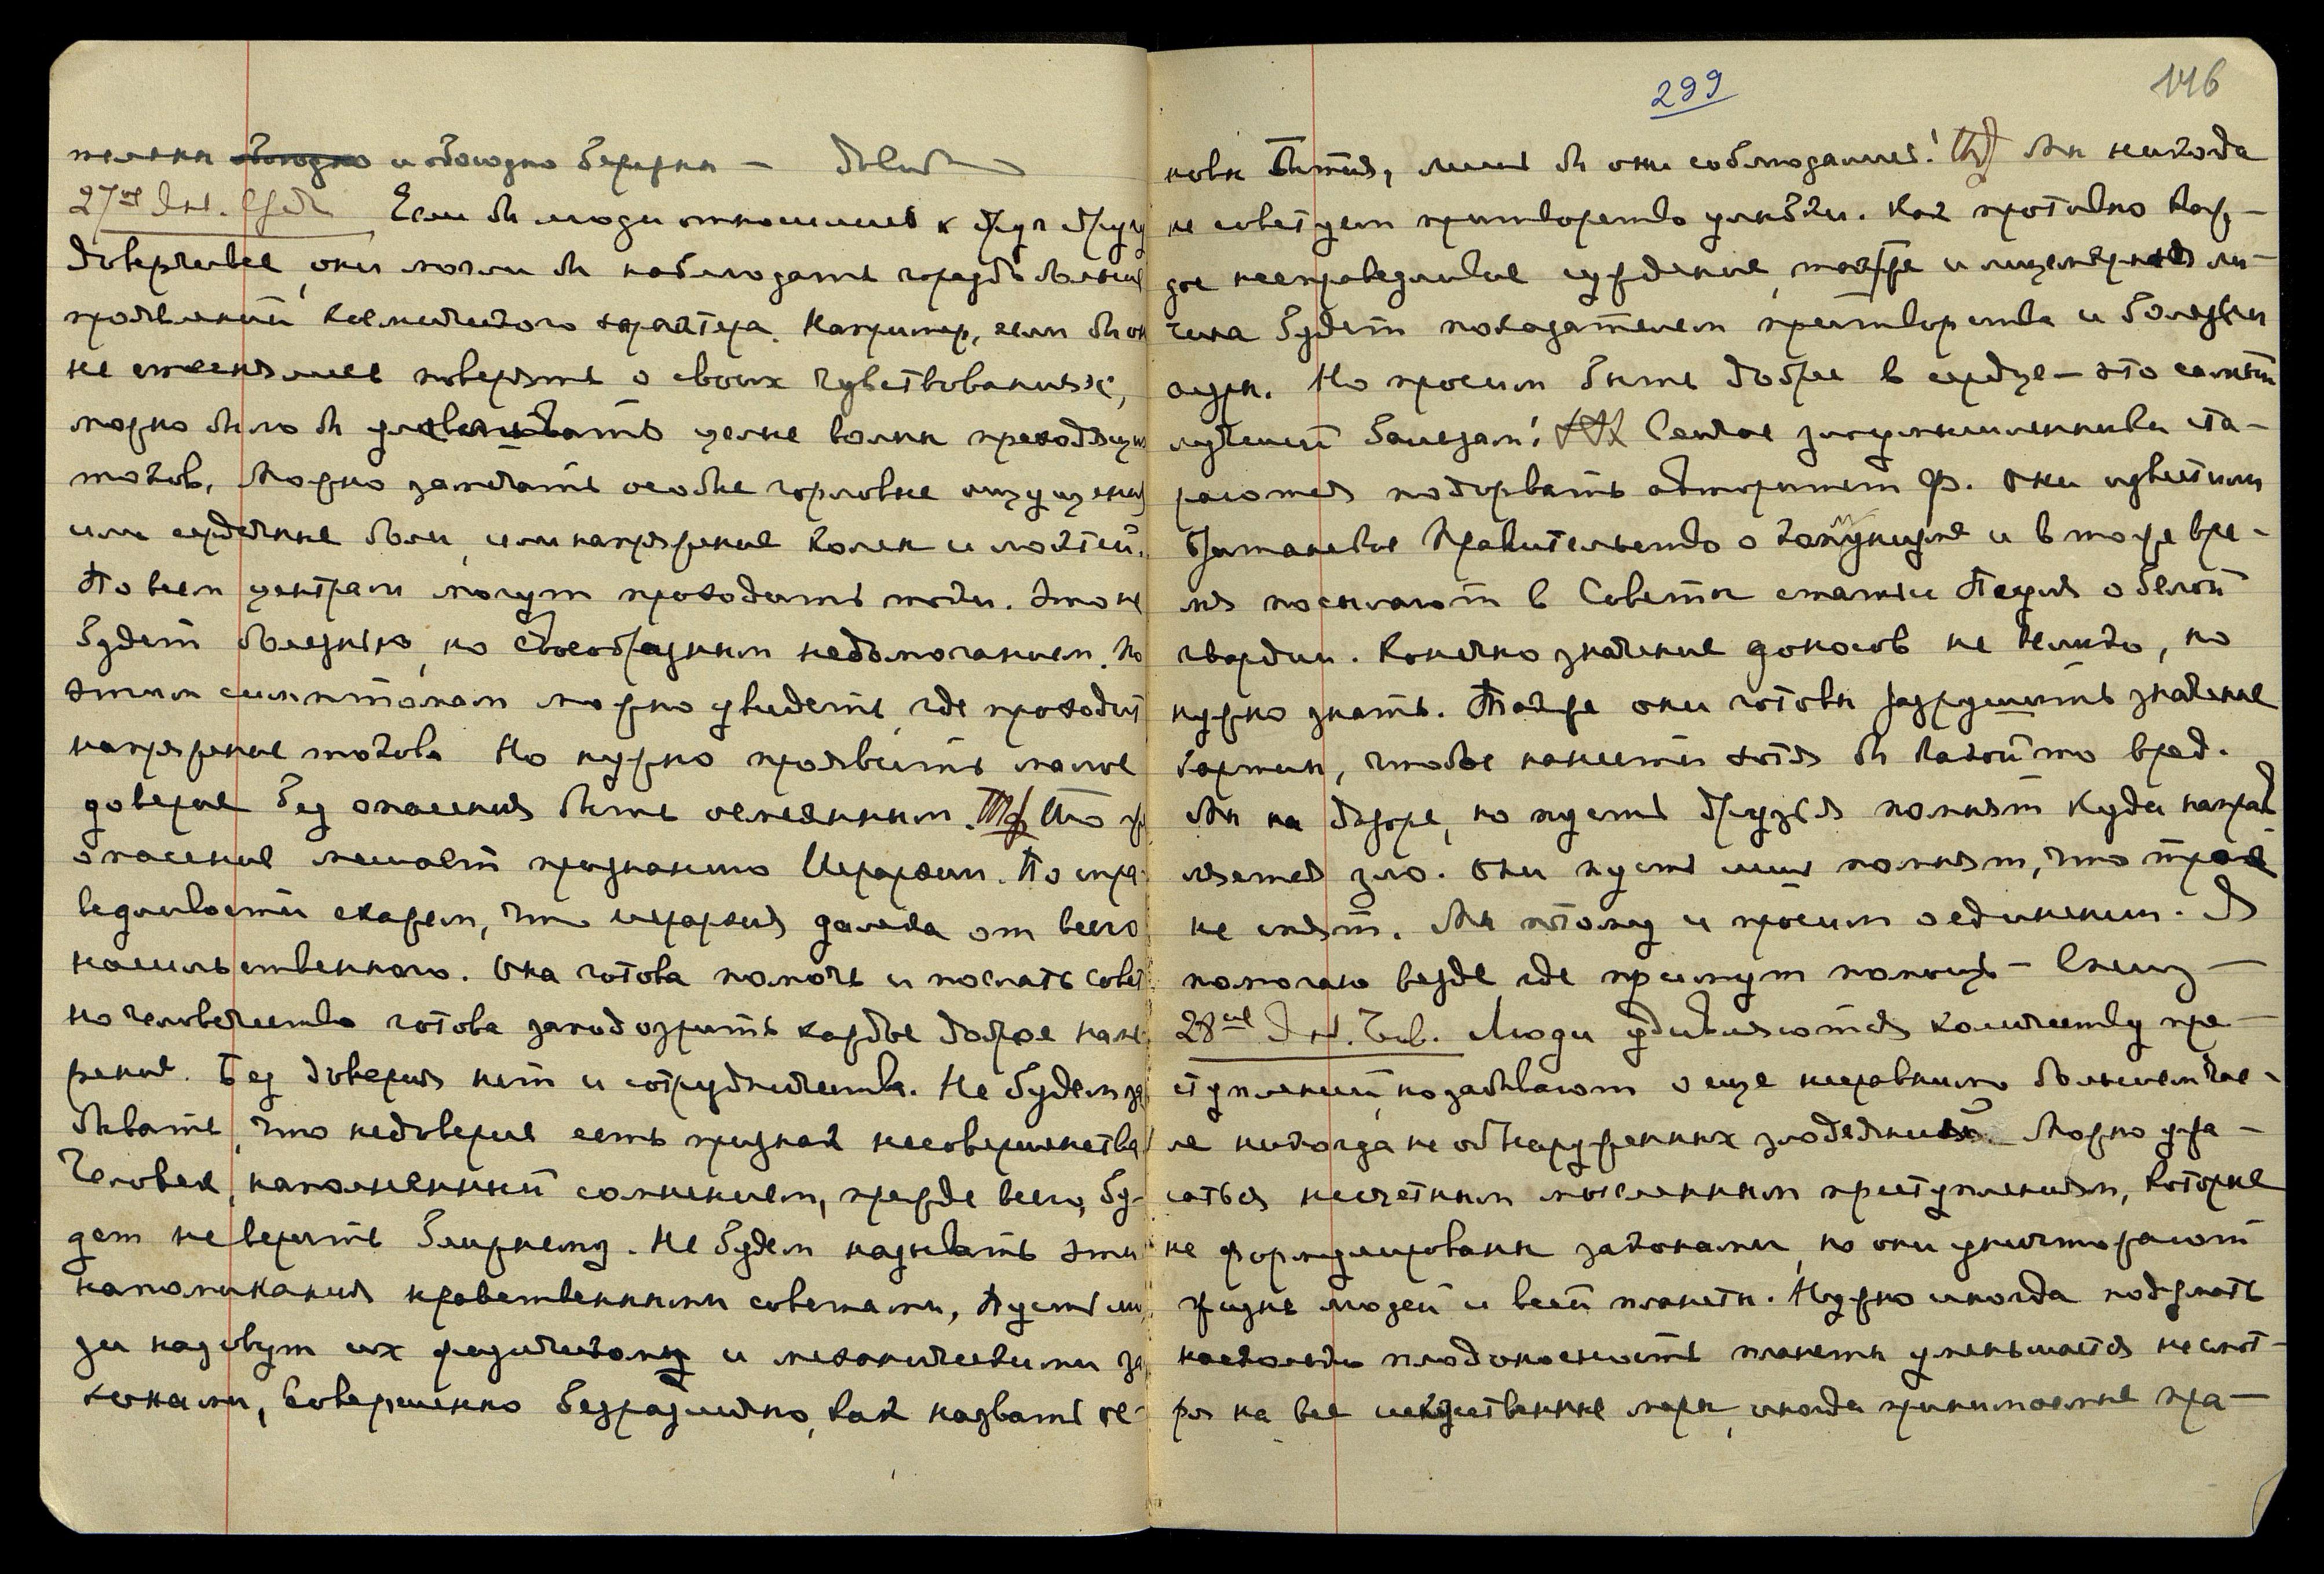 тельны обоюдно и обоюдно бережны — Довольно
27ое Янв. Срд. Если бы люди относились к друг другу
доверчивее, они могли бы наблюдать гораздо больше
проявлений космического характера. Например, если бы они
не стеснялись поверять о своих чувствованиях,
можно было бы улавливать целые волны преходящих
токов. Можно замечать особые горловые ощущения
или сердечные боли, или напряжение колен и локтей.
По всем центрам могут проходить токи. Это не
будет болезнью, но своеобразным недомоганием. По
этим симптомам можно увидеть, где проходит
напряжение токов. Но нужно проявить малое
доверие без опасения быть осмеянным. То же
опасение мешает признанию Иерархии. По спра-
ведливости скажем, что иерархия далека от всего
насильственного. Она готова помочь и послать совет,
но человечество готово заподозрить каждое доброе наме-
рение. Без доверия нет и сотрудничества. Не будем за-
бывать, что недоверие есть признак несовершенства.
Человек, наполненный сомнением, прежде всего, бу-
дет не верить ближнему. Не будем называть эти
напоминания нравственными советами, пусть лю-
ди назовут их физическими и механическими за-
конами, совершенно безразлично, как назвать ос-
299
146
новы бытия, лишь бы они соблюдались! Мы никогда
не советуем притворство улыбки. Как противно каж-
дое несправедливое суждение, также и лицемерная ли-
чина будет показателем притворства и болезни
ауры. Но просим быть добрее в сердце — это самый
лучший бальзам! Сейчас злоумышленники ста-
раются подорвать авторитет Ф. Они известили
Британское Правительство о и в то же вре-
мя посылают в Советы статьи о белой
гвардии. Конечно значение доносов не велико, но
нужно знать. Также они готовы разрушить значение
картин, чтобы нанести хотя бы какой то вред.
Мы на дозоре, но пусть друзья помнят куда направ
ляется зло. Они пусть помнят, что
не спят. Мы потому и просим о единении. Я
помогаю везде где примут помощь — Спешу —
28ое Янв. Чтв. Люди удивляются количеству пре-
ступлений, но забывают о еще несравнимо большем чис-
ле никогда не обнаруженных злодеяний. Можно ужа-
саться несчетным мысленным преступлениям, которые
не формулированы законами, но они уничтожают
жизнь людей и всей планеты. Нужно иногда подумать
насколько плодоносность планеты уменьшается несмот-
ря на все искусственные меры, иногда принимаемые пра-